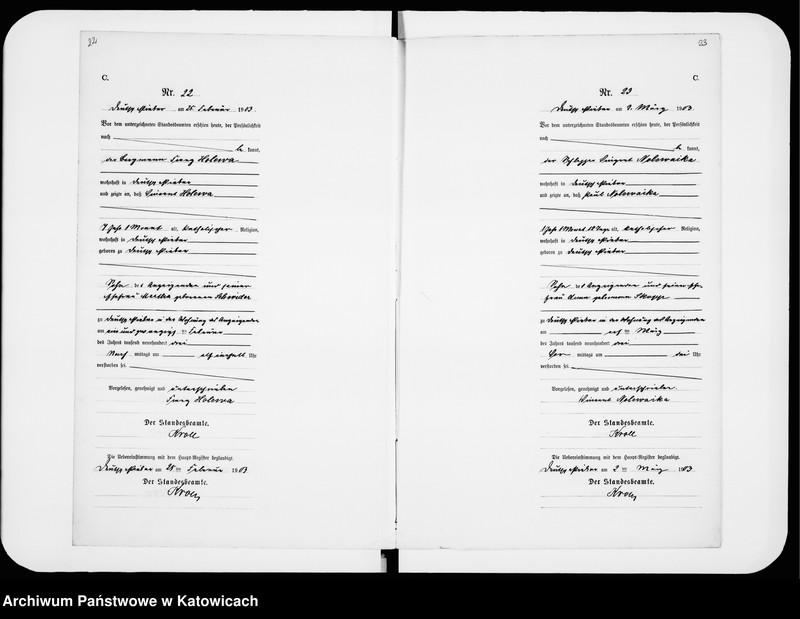 22
C.
Nr. 22
Deutsch Piekar am 25. Februar 1903.
Vor dem unterzeichneten Standesbeamten erschien heute, der Persönlichkeit
nach
be kannt,
der Bergmann Holewa
wohnhaft in Deutsch Piekar
und zeigte an, daß Vincent Holewa
7 Jahr 1 Monat alt, katholischer Religion,
wohnhaft in Deutsch Piekar
geboren zu Deutsch Piekar
Sohn des Anzeigenden und seiner
Ehefrau geborenen
zu Deutsch Piekar in der Wohnung des Anzeigenden
am ten Februar
des Jahres tausend neunhundert drei
Nach mittags um elf einhalb Uhr
verstorben sei.
Vorgelesen, genehmigt und unterschrieben
Holewa
Der Standesbeamte.
Kroll
Die Uebereinstimmung mit dem Haupt-Register beglaubigt.
Deutsch Piekar am 25 ten Februar 1903
Der Standesbeamte.
Kroll
23
C.
Nr. 23
Deutsch Piekar am 2. März 1903.
Vor dem unterzeichneten Standesbeamten erschien heute, der Persönlichkeit
nach
be kannt,
der Vincent Nolewaika
wohnhaft in Deutsch Piekar
und zeigte an, daß Paul Nolewaika
1 Jahr 1 Monat 18 Tage alt, katholischer Religion,
wohnhaft in Deutsch Piekar
geboren zu Deutsch Piekar
Sohn des Anzeigenden und seiner Ehe-
frau geborenen
zu Deutsch Piekar in der Wohnung des Anzeigenden
am ten März
des Jahres tausend neunhundert drei
Vor mittags um drei Uhr
verstorben sei.
Vorgelesen, genehmigt und unterschrieben.
Vincent Nolewaika
Der Standesbeamte.
Kroll
Die Uebereinstimmung mit dem Haupt-Register beglaubigt.
Deutsch Piekar am 2 ten März 1903.
Der Standesbeamte.
Kroll
Archiwum Państwowe w Katowicach